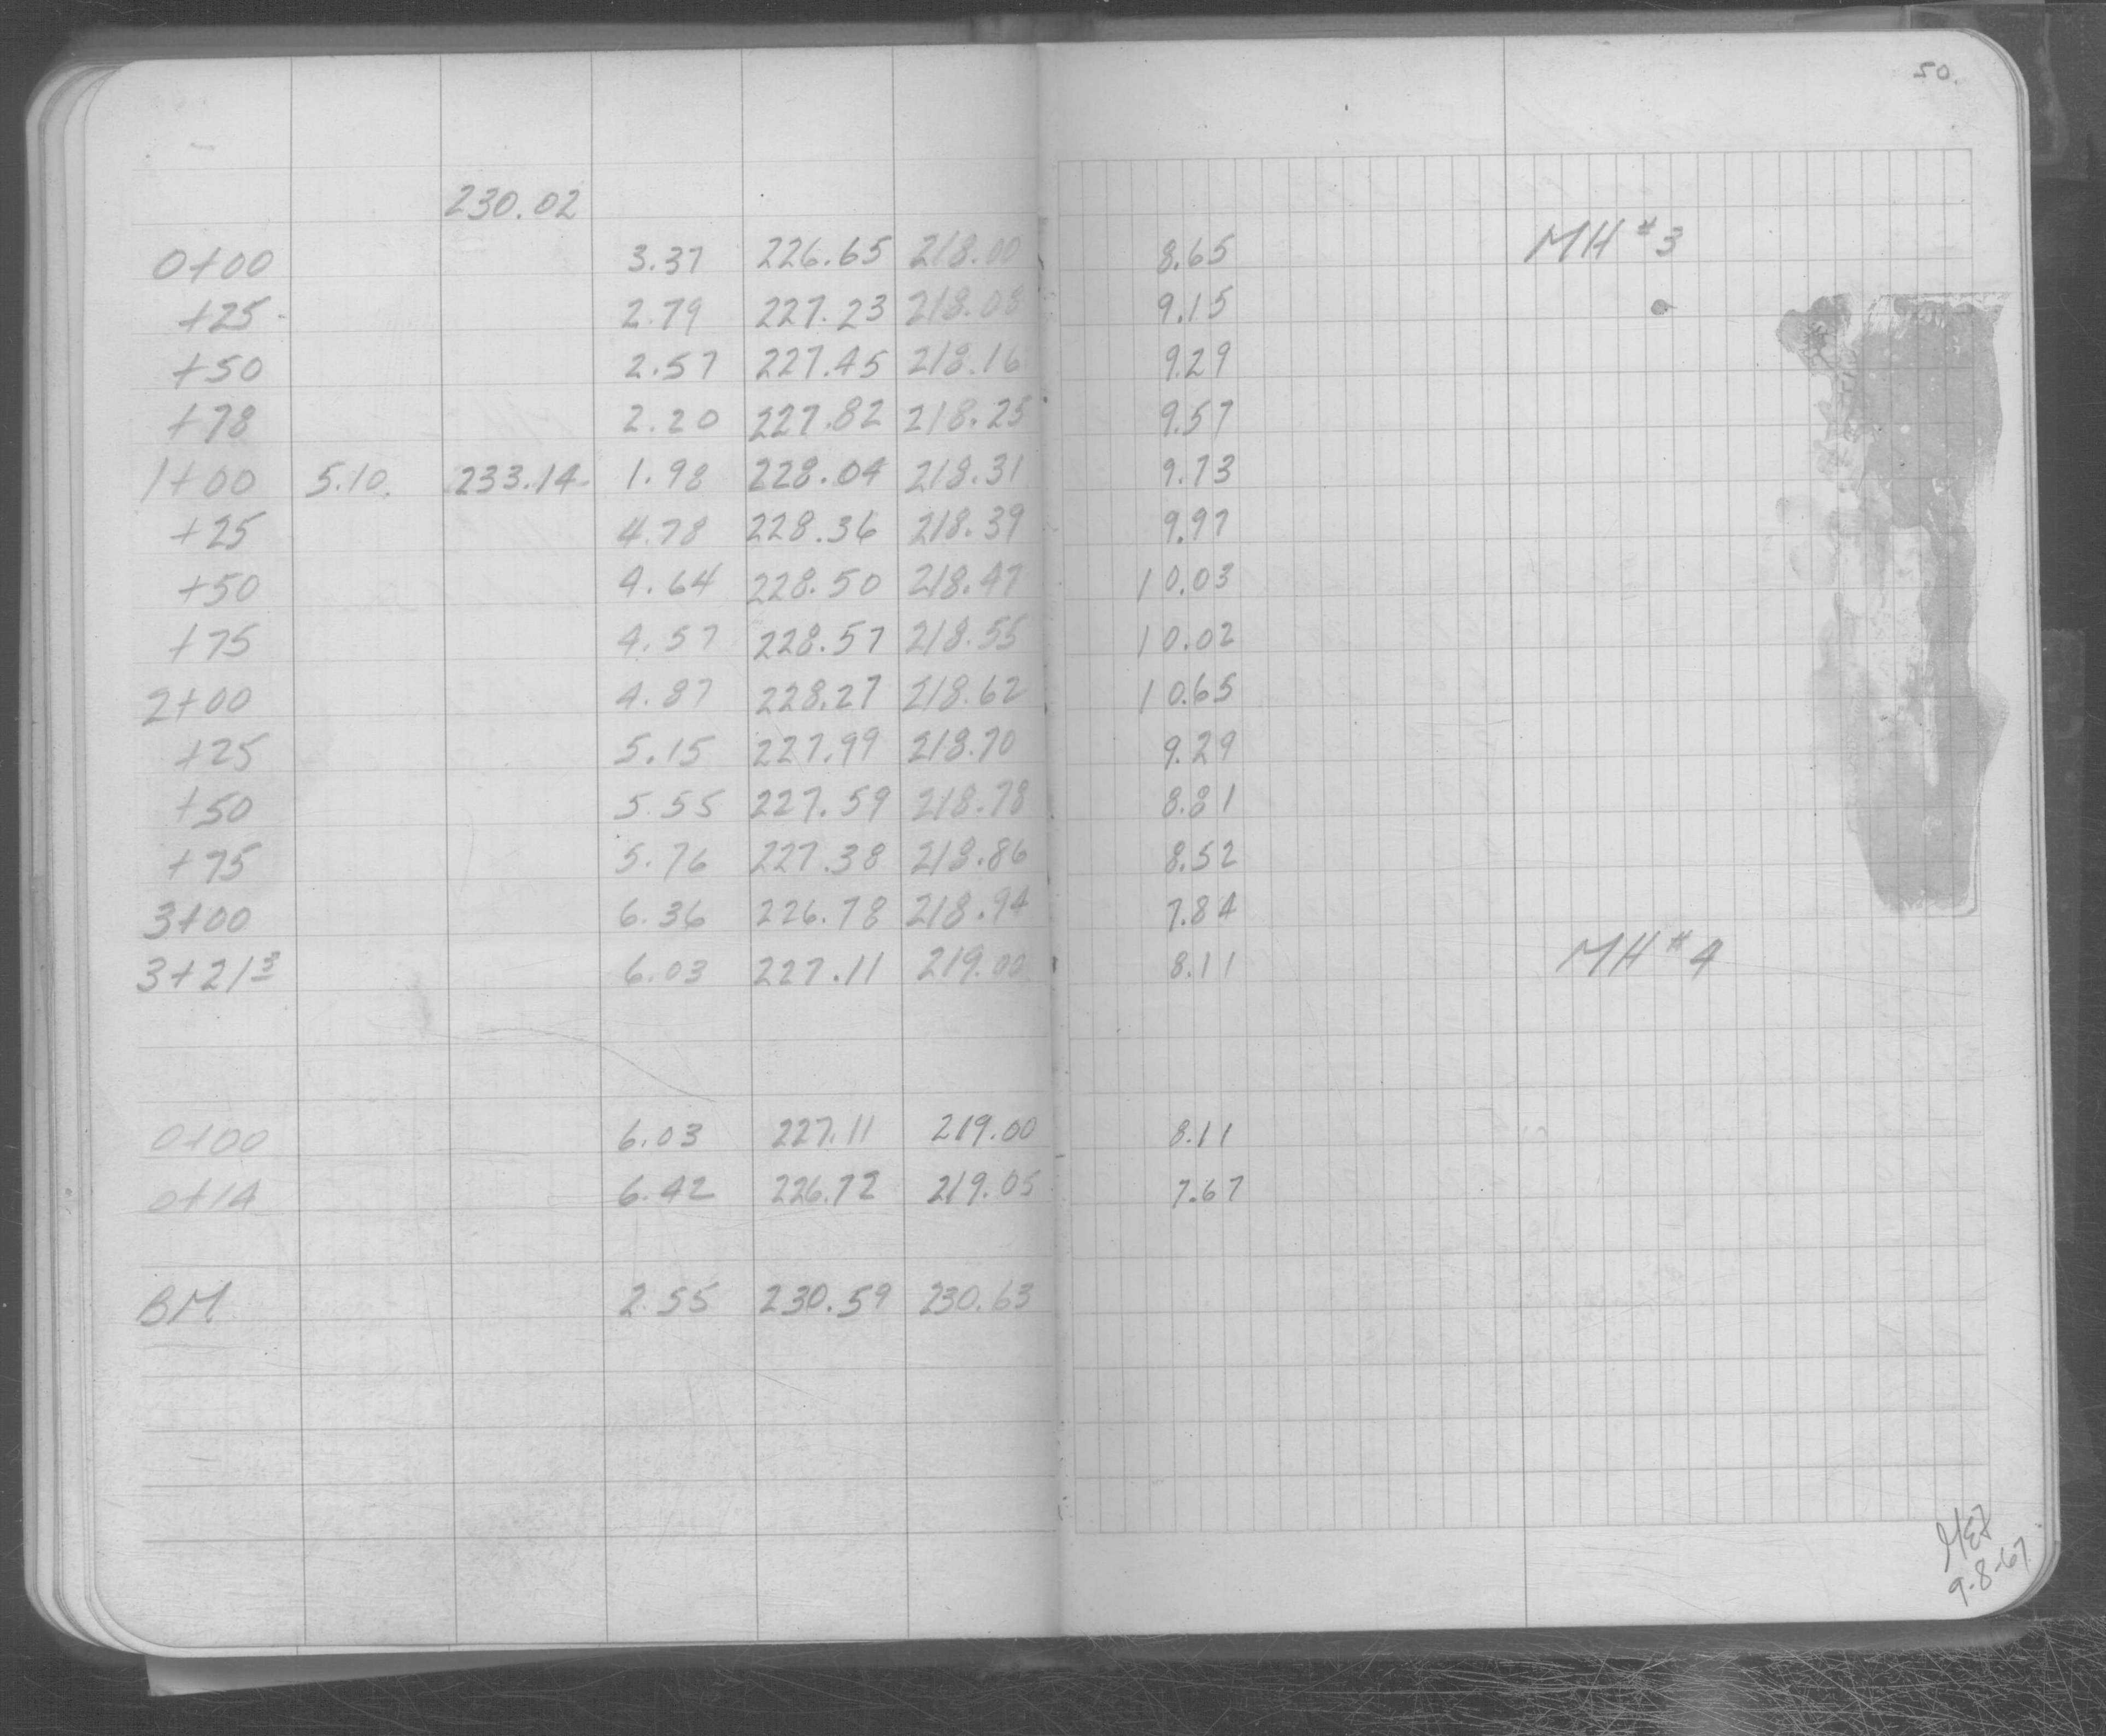 50.
230.02
0+00 3.37 226.65 218.00 8.65 MH #3
+25 2.79 227.23 218.08 9.15
+50 2.57 227.45 218.16 9.29
+78 2.20 227.82 218.25 9.57
1+00 5.10 233.14 1.98 228.04 218.31 9.73
+25 4.78 228.36 218.39 9.97
+50 4.64 228.50 218.47 10.03
+75 4.57 228.57 218.55 10.02
2+00 4.87 228.27 218.62 10.65
+25 5.15 227.99 218.70 9.29
+50 5.55 227.59 218.78 8.81
+75 5.76 227.38 218.86 8.52
3+00 6.36 226.78 218.94 7.84
3+21³ 6.03 227.11 219.00 8.11 MH #4
0+00 6.03 227.11 219.00 8.11
0+14 6.42 226.72 219.05 7.67
BM 2.55 230.59 230.63
9-8-67